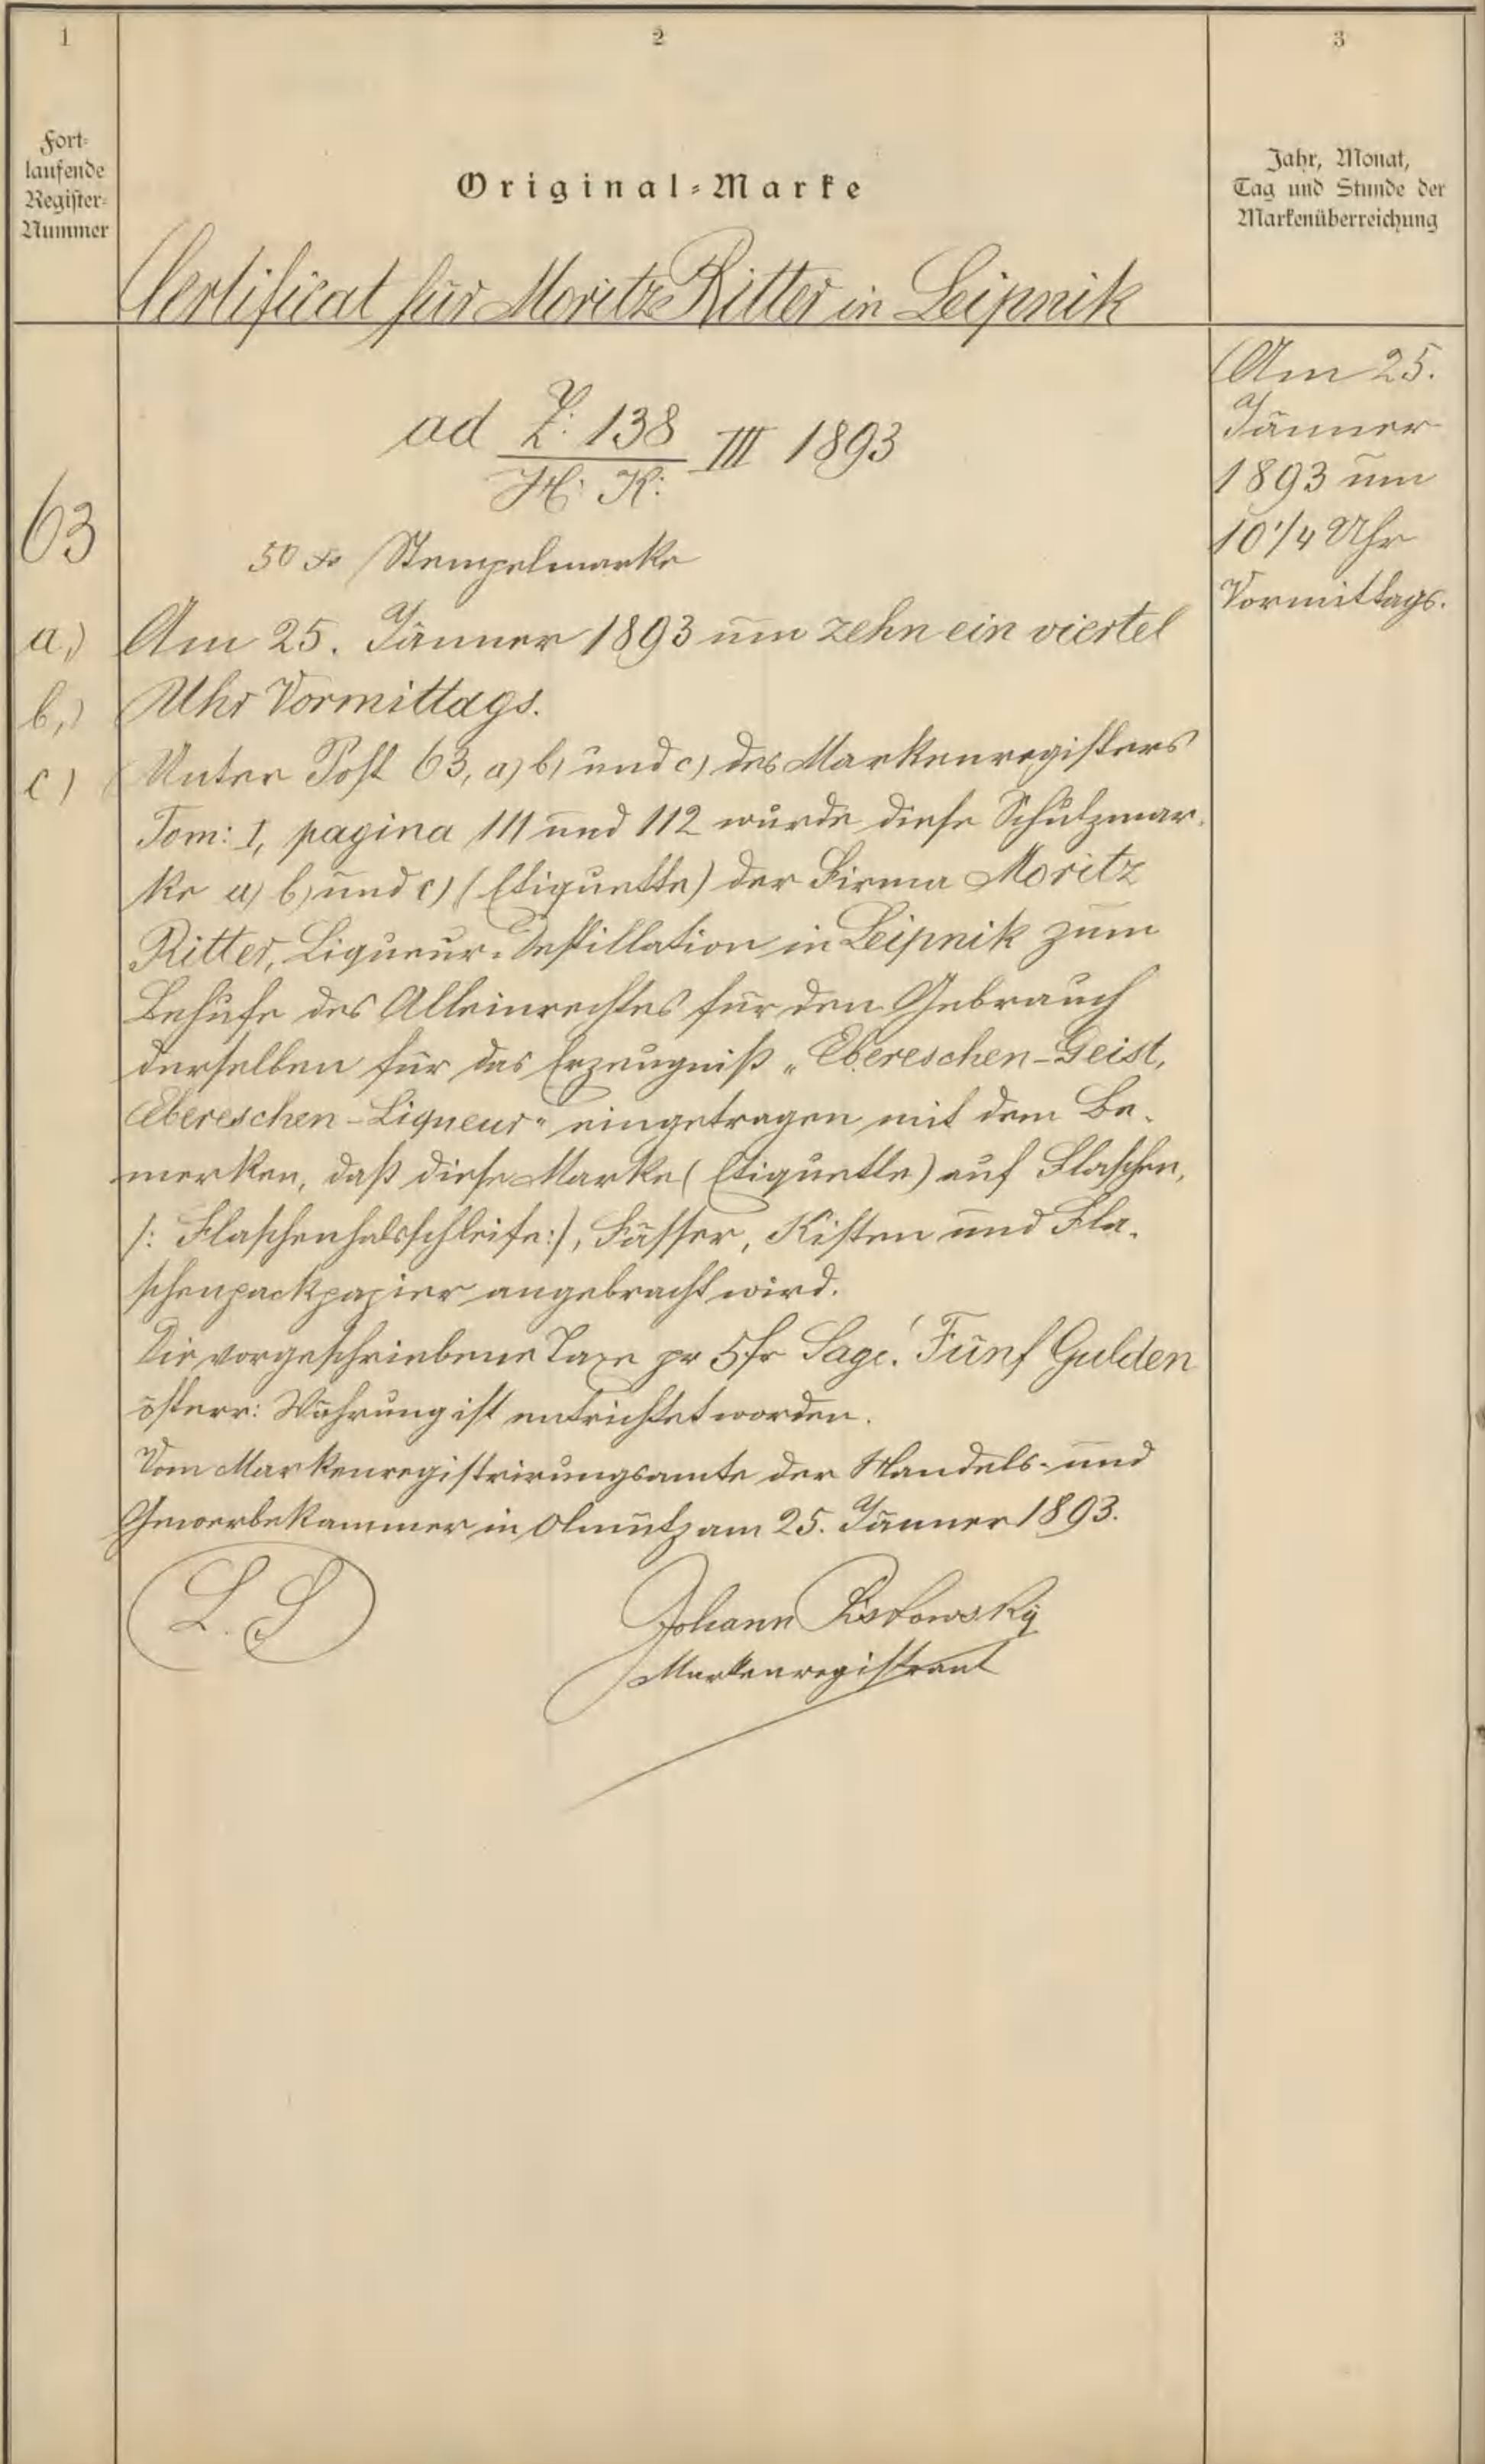 1
2
3
Fort-
laufende
Register-
Nummer
Original-Marke
Jahr, Monat,
Tag und Stunde der
Markenüberreichung
Certificat für Moritz Ritter in Leipnik
ad Z: 138 III 1893
H: K:
63
50 x Stempelmarke
a,)
b,)
c)
Am 25. Jänner 1893 um zehn ein viertel
Uhr Vormittags.
Unter Post 63, a) b) und c) des Markenregisters
Tom: I, pagina 111 und 112 wurde diese Schutzmar-
ke a) b) und c) (Etiquette) der Firma Moritz
Ritter, Liqueur-Destillation in Leipnik zum
Behufe des Alleinrechtes für den Gebrauch
derselben für das Erzeugniß „Ebereschen-Geist,
Ebereschen-Liqueur" eingetragen mit dem Be-
merken, daß diese Marke (Etiquette) auf Flaschen,
/: Flaschenhalsschleife:/, Fässer, Kisten und Fla-
schenpackpapier angebracht wird.
Die vorgeschriebene Taxe pr 5 fr Sage! Fünf Gulden
österr: Währung ist entrichtet worden.
Vom Markenregistrirungsamte der Handels- und
Gewerbekammer in Olmütz am 25. Jänner 1893.
L. S
Johann
Markenregistrant
Am 25.
Jänner
1893 um
10 1/4 Uhr
Vormittags.